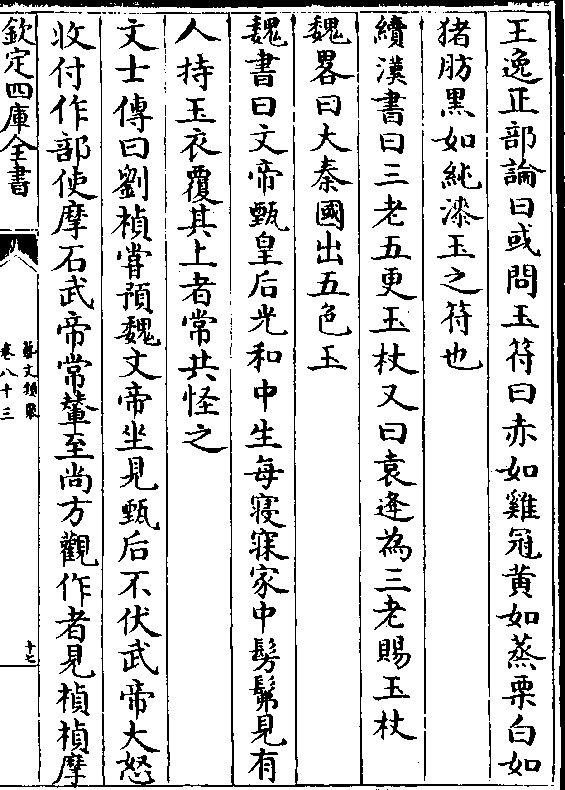 王逸正部論曰或問玉符曰赤如雞冠黄如蒸栗白如
猪肪黑如純漆玉之符也
續漢書曰三老五更玉杖又曰袁逄為三老賜玉杖
魏畧曰大秦國出五色玉
魏書曰文帝甄皇后光和中生每寝寐家中髣髴見有
人持玉衣覆其上者常共怪之
文士傳曰劉楨嘗預魏文帝坐見甄后不伏武帝大怒
收付作部使摩石武帝常輦至尚方觀作者見楨楨摩
欽定四庫全書
藝文類聚
卷八十三
十七